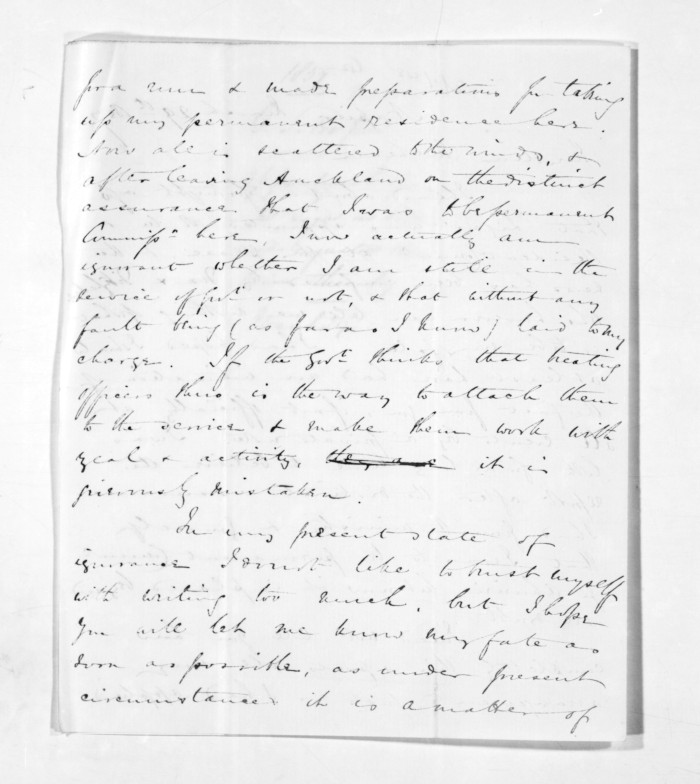 for a run & made preparations for taking
up my permanent residence here.
Now all is scattered to the winds, &
after leaving Auckland on the distinct
assurance that I was to be permanent
Commissr. here, I now actually am
ignorant whether I am still in the
service of Govt. or not, & that without any
fault being (as far as I know) laid to my
charge. If the Govt. thinks that treating
officers thus is the way to attach them
to the service & make them work with
zeal & activity, they are it is
grievously mistaken.
In my present state of
ignorance I do not like to trust myself
with writing too much, but I hope
you will let me know my fate as
soon as possible, as under present
circumstances it is a matter of